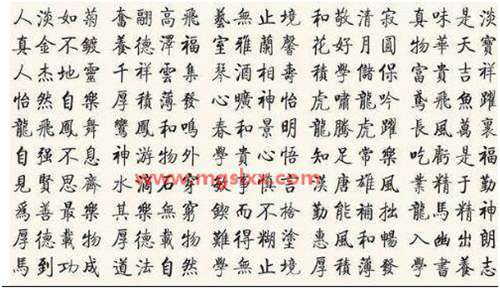 人淡如菊 奮翮高飛 藝無止境 和敬清寂 真味是淡
真金不鍍 養德澤福 室雅蘭馨 花好月圓 物華天寶
人杰地靈 千祥雲集 琴酒相壽 學儲 富貴吉祥
怡然自樂 厚積薄發 心曠神怡 虎嘯龍吟 鳶飛魚躍
龍飛鳳舞 鸞鳳和鳴 春和景明 龍騰虎躍 長風萬里
自强不息 神游物外 學貴心悟 知足常樂 吃虧是福
見賢思齊 水滴石穿 漢唐雄風 業精于勤
www.mgslxx.com
為善最樂 其樂無窮 鍥而不捨 勤能補拙 龍馬精神
厚德載物 厚德載物 難得糊塗 惠風和暢 入幽出朗
馬到功成 道法自然 學無止境 厚積薄發 學書養志